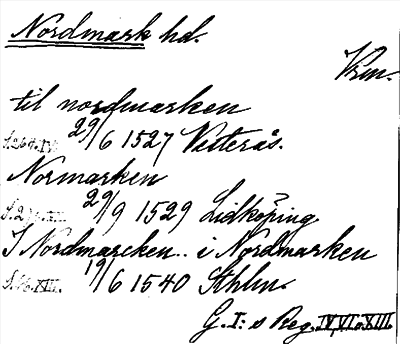 Nordmark hd.
Vrm.
til nordmarken
29/6 1527 Vesterås.
Normarken
29/9 1529 Lidköping
I Nordmarcken.. i Nordmarken
19/6 1540 Sthlm.
G. I:s Reg. IV, VI o XIII.